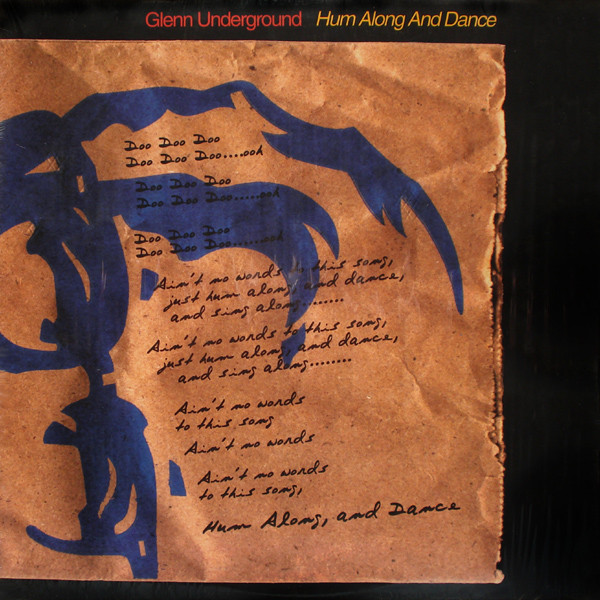 Glenn Underground Hum Along And Dance
Doo Doo Doo
Doo Doo Doo....ooh
Doo Doo Doo
Doo Doo Doo.....ooh
Doo Doo Doo
Doo Doo Doo.......ooh
Ain't no words to this song,
just hum along, and dance,
and sing along.......
Ain't no words to this song,
just hum along, and dance,
and sing along........
Ain't no words
to this song
Ain't no words
Ain't no words
to this song,
Hum Along, and Dance